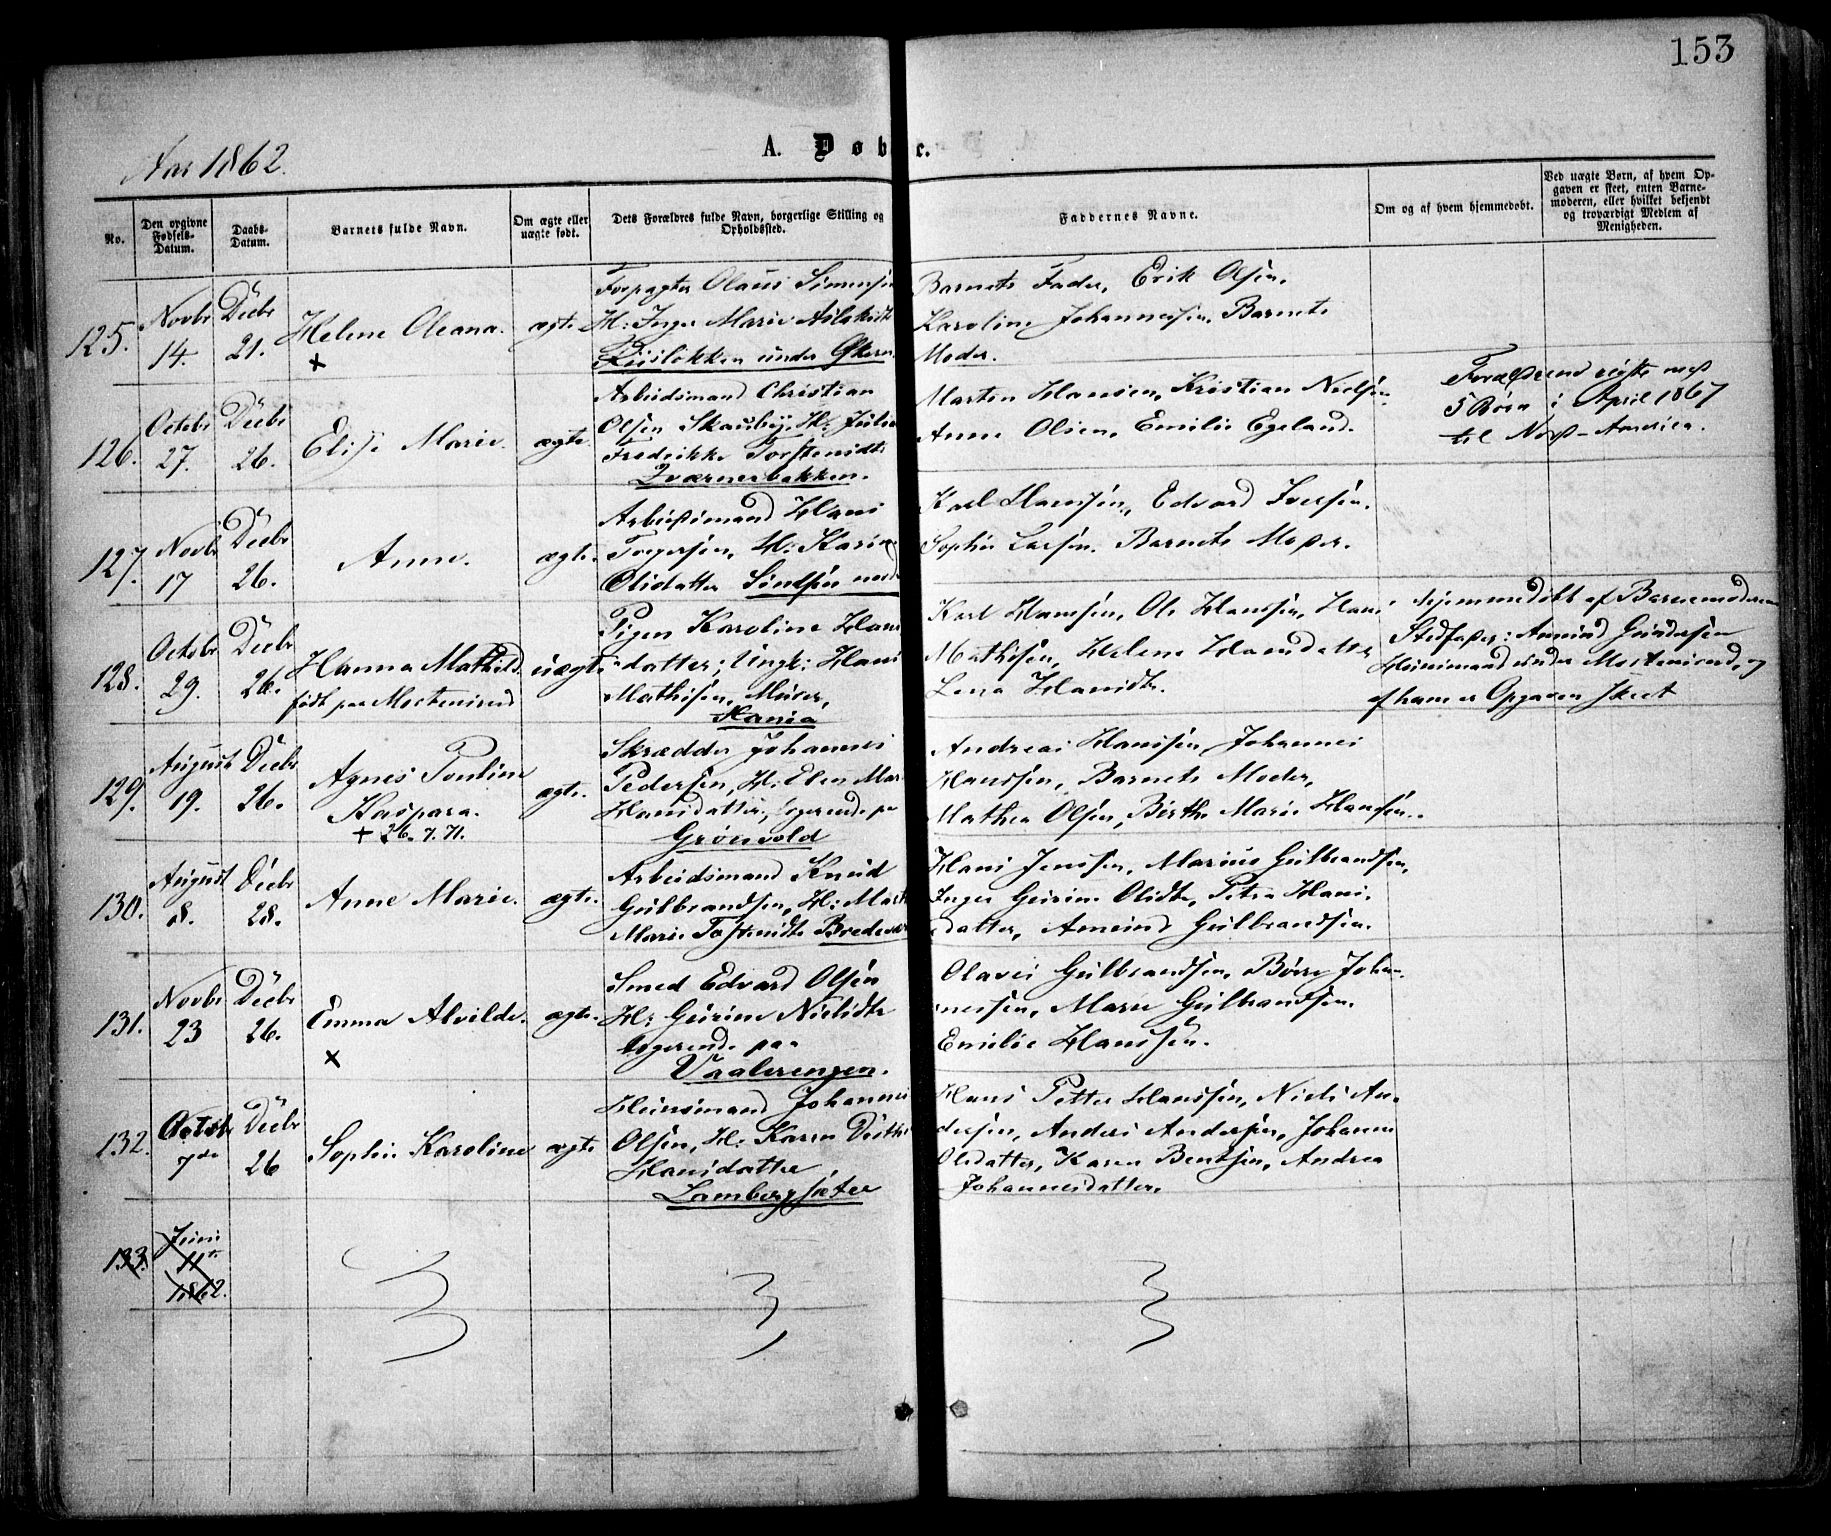 153
Aar 1862.
A. Døbte.
No.
Den opgivne Fødsels-Datum.
Daabs-Datum.
Barnets fulde Navn.
Om ægte eller uægte født.
Dets Forældres fulde Navn, borgerlige Stilling og Opholdssted.
Faddernes Navne.
Om og af hvem hjemmedøbt.
Ved uægte Børn, af hvem Opgaven er skeet, enten Barnemoderen, eller hvilket bekjendt og troværdigt Medlem af Menigheden.
125.
Novbr 14.
Decbr 21.
Helene Oleana.
+
ægte
Forpagter Olaus Simensen
H: Inger Marie Aslaksdt
Riisløkken under Økern.
Barnets Fader, Erik Olsen,
Karoline Johannessen, Barnets
Moder.
126.
Octobr 27.
Decbr 26.
Elise Marie.
ægte
Arbeidsmand Christian
Olsen Skauby, H: Julie
Fredrikke Torstensdt
Kværnerbækken.
Marten Hansen, Kristian Nielsen,
Anne Olsen, Emilie Egeland.
Forældrene reiste med
5 Børn i April 1867
til Nord-America.
127.
Novbr 17
Decbr 26.
Anne.
ægte
Arbeidsmand Hans
Torgersen, H: Karin
Olsdatter Sinsen nedre
Karl Hansen, Edvard Iversen.
Sophie Larsen. Barnets Moder.
128.
Octobr 29.
Decbr 26.
Hanna Mathild.
født paa Mortensrud
uægte
Pigen Karoline Hans
datter; Ungk: Hans
Mathisen, Murer,
Karl Hansen, Ole Hanssen, Hans
Mathisen, Helene Hansdatter
Lena Hansdt.
Hjemmedøbt af Barnemoderens
Stedfader: Amund Gundersen
Huusmand under Mortensrud, og
af ham er Opgaven skeet
129.
August 19.
Decbr 26.
Agnes Pouline
Kaspara.
+ 26.7.71.
ægte
Skrædder Johannes
Pedersen, H: Elen Mar.
Hansdatter, logerende pa
Grønvold
Andreas Hanssen, Johannes
Hanssen, Barnets Moder,
Mathea Olsen, Birthe Marie Hansen.
130.
August 8.
Decbr 28.
Anne Marie.
ægte
Arbeidsmand Knud
Gulbrandsen, H: Marte
Marie Tostensdt
Hans Jenssen, Marius Gulbrandsen,
Inger Gurine Olsdt, Petra Hans
datter, Amund Gulbrandsen.
131.
Novbr 23
Decbr 26.
Emma Alvilde.
+
ægte
Smed Edvard Olsen
H: Gurine Nielsdt
logerende paa
Vaalerengen.
Olaves Gulbrandsen, Børre Johan-
nessen, Marie Gulbrandsen.
Emilie Hanssen.
132.
Octobr 7de
Decbr 26
Sophie Karoline
ægte
Huusmand Johannes
Olsen, H: Karen Dorthe
Hansdatter
Lambergsæter
Hans Petter Hanssen, Niels An-
dersen, Anders Andersen, Johanne
Olsdatter, Karen Bentsen, Andrea
Johannesdatter.
133.
Juni
11te
1862.